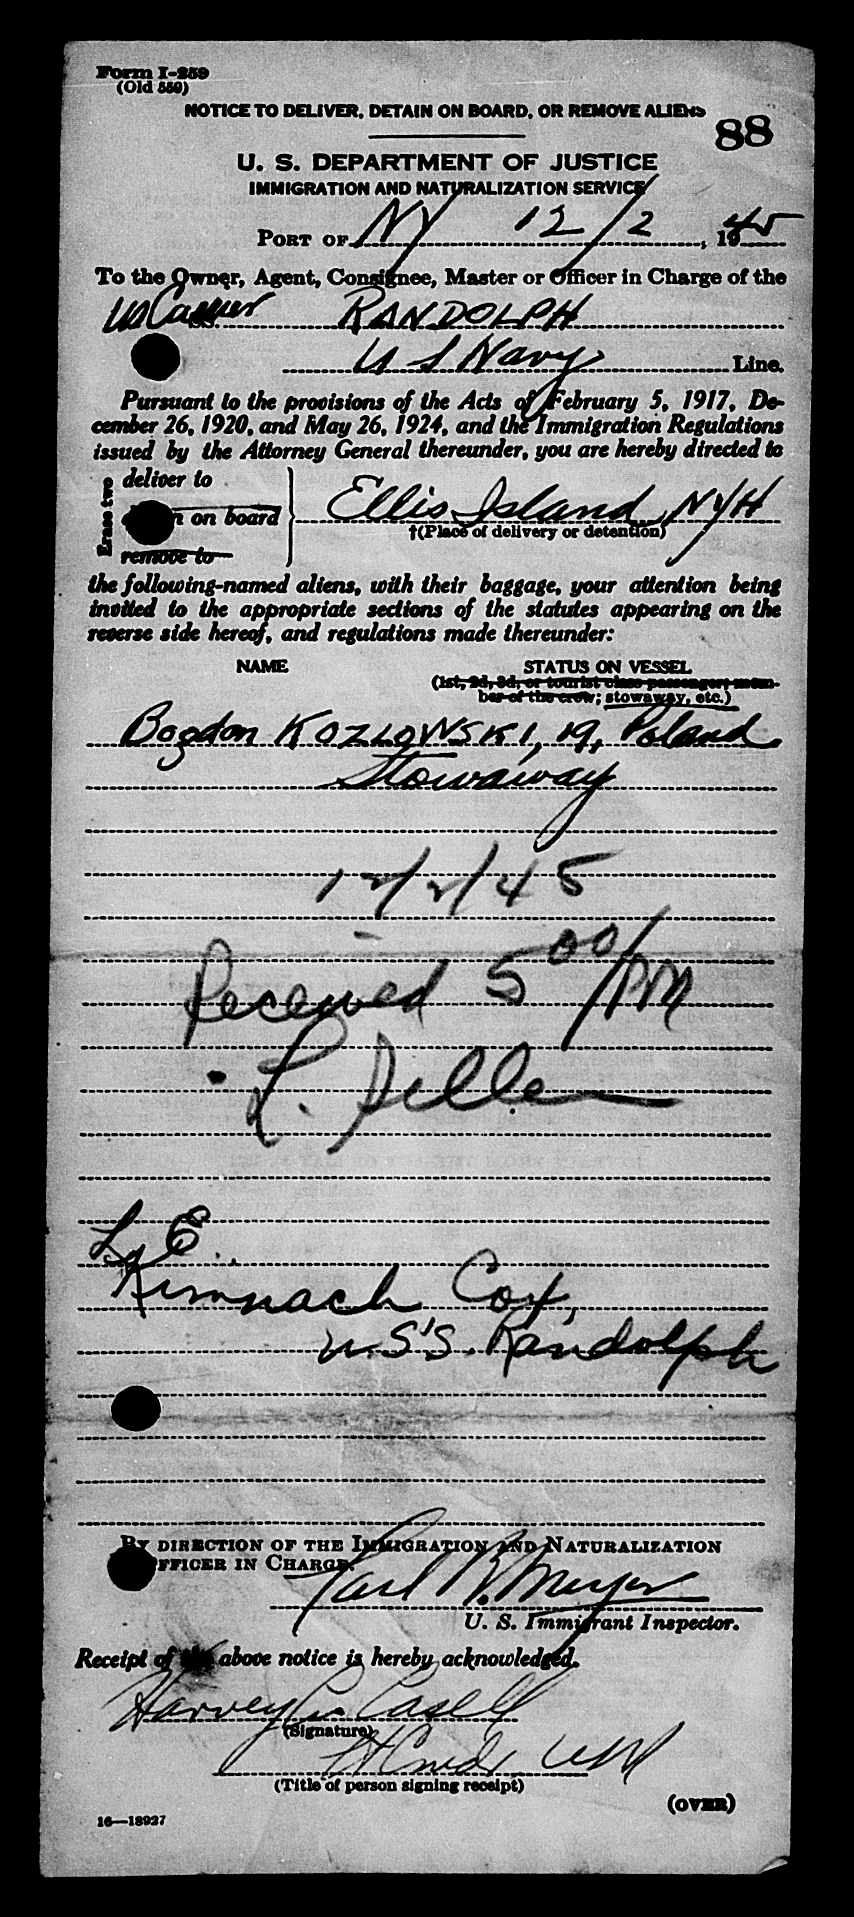 Form I-259
(Old 559)
NOTICE TO DELIVER, DETAIN ON BOARD, OR REMOVE ALIENS
88
U. S. DEPARTMENT OF JUSTICE
IMMIGRATION AND NATURALIZATION SERVICE
PORT OF NY 12/2, 1945
To the Owner, Agent, Consignee, Master or Officer in Charge of the
RANDOLPH
U S Navy Line.
Pursuant to the provisions of the Acts of February 5, 1917, De-
cember 26, 1920, and May 26, 1924, and the Immigration Regulations
issued by the Attorney General thereunder, you are hereby directed to
Erase two
deliver to
on board
remove to
Ellis Island NYH
†(Place of delivery or detention)
the following-named aliens, with their baggage, your attention being
invited to the appropriate sections of the statutes appearing on the
reverse side hereof, and regulations made thereunder:
NAME STATUS ON VESSEL
(1st, 2d, 3d, or tourist class passenger; mem-
ber of the crew; stowaway, etc.)
Bogdon KOZLOWSKI, 19, Poland
Stowaway
12/2/45
Received 5 00/PM
L.
Kimnach Cox,
U.S.S. Randolph
BY DIRECTION OF THE IMMIGRATION AND NATURALIZATION
OFFICER IN CHARGE.
Carl B. Meyer
U. S. Immigrant Inspector.
Receipt of the above notice is hereby acknowledged.
Harvey C. Casell
(Signature)
(Title of person signing receipt)
(OVER)
16—18927